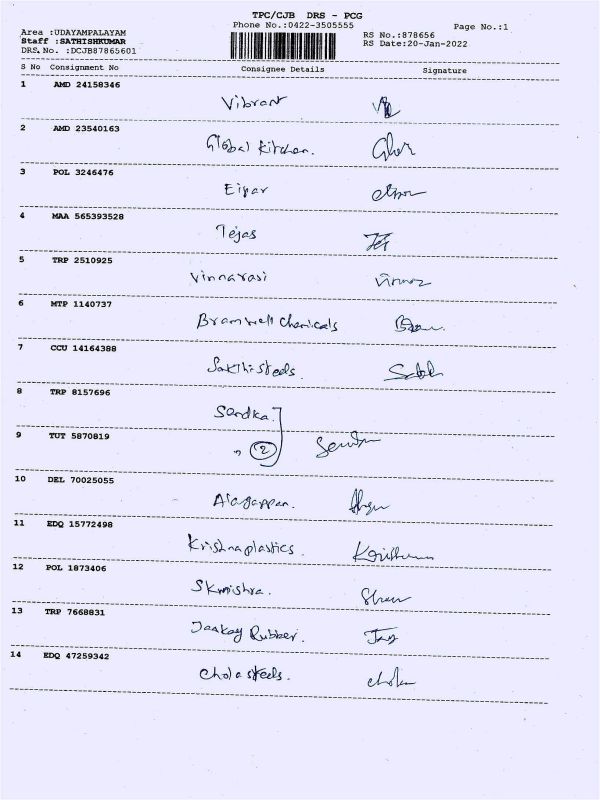 TPC/CJB DRS - PCG
Phone No.:0422-3505555
Page No.:1
Area :UDAYAMPALAYAM
RS No.:878656
Staff :SATHISHKUMAR
RS Date:20-Jan-2022
DRS. No. :DCJB87865601
S No Consignment No Consignee Details Signature
1 AMD 24158346
Vibrant
2 AMD 23540163
Global Kitchen.
3 POL 3246476
4 MAA 565393528
Tejas
5 TRP 2510925
Vinnarasi
6 MTP 1140737
Bramwell Chemicals
7 CCU 14164388
Sakthi steels.
8 TRP 8157696
9 TUT 5870819
" 2
10 DEL 70025055
Alagappan.
11 EDQ 15772498
Krishna plastics.
12 POL 1873406
SK mishra.
13 TRP 7668831
Rubber.
14 EDQ 47259342
Chola steels.